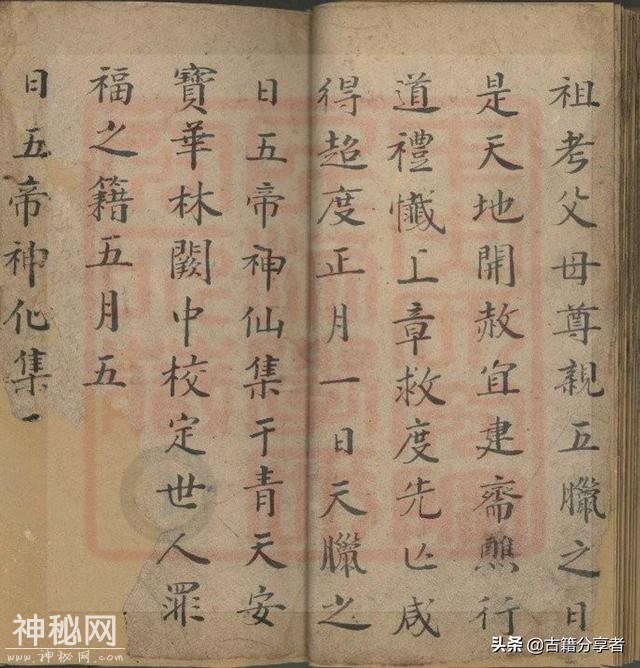 祖考父母尊親五臘之日
是天地開赦宜建齋醮行
道禮懴上章救度先亾咸
得超度正月一日天臘之
日五帝神仙集于青天安
寶華林闕中校定世人罪
福之籍五月五
日五帝神化集
神秘网
www.shenmiw.com
头条 @古籍分享者